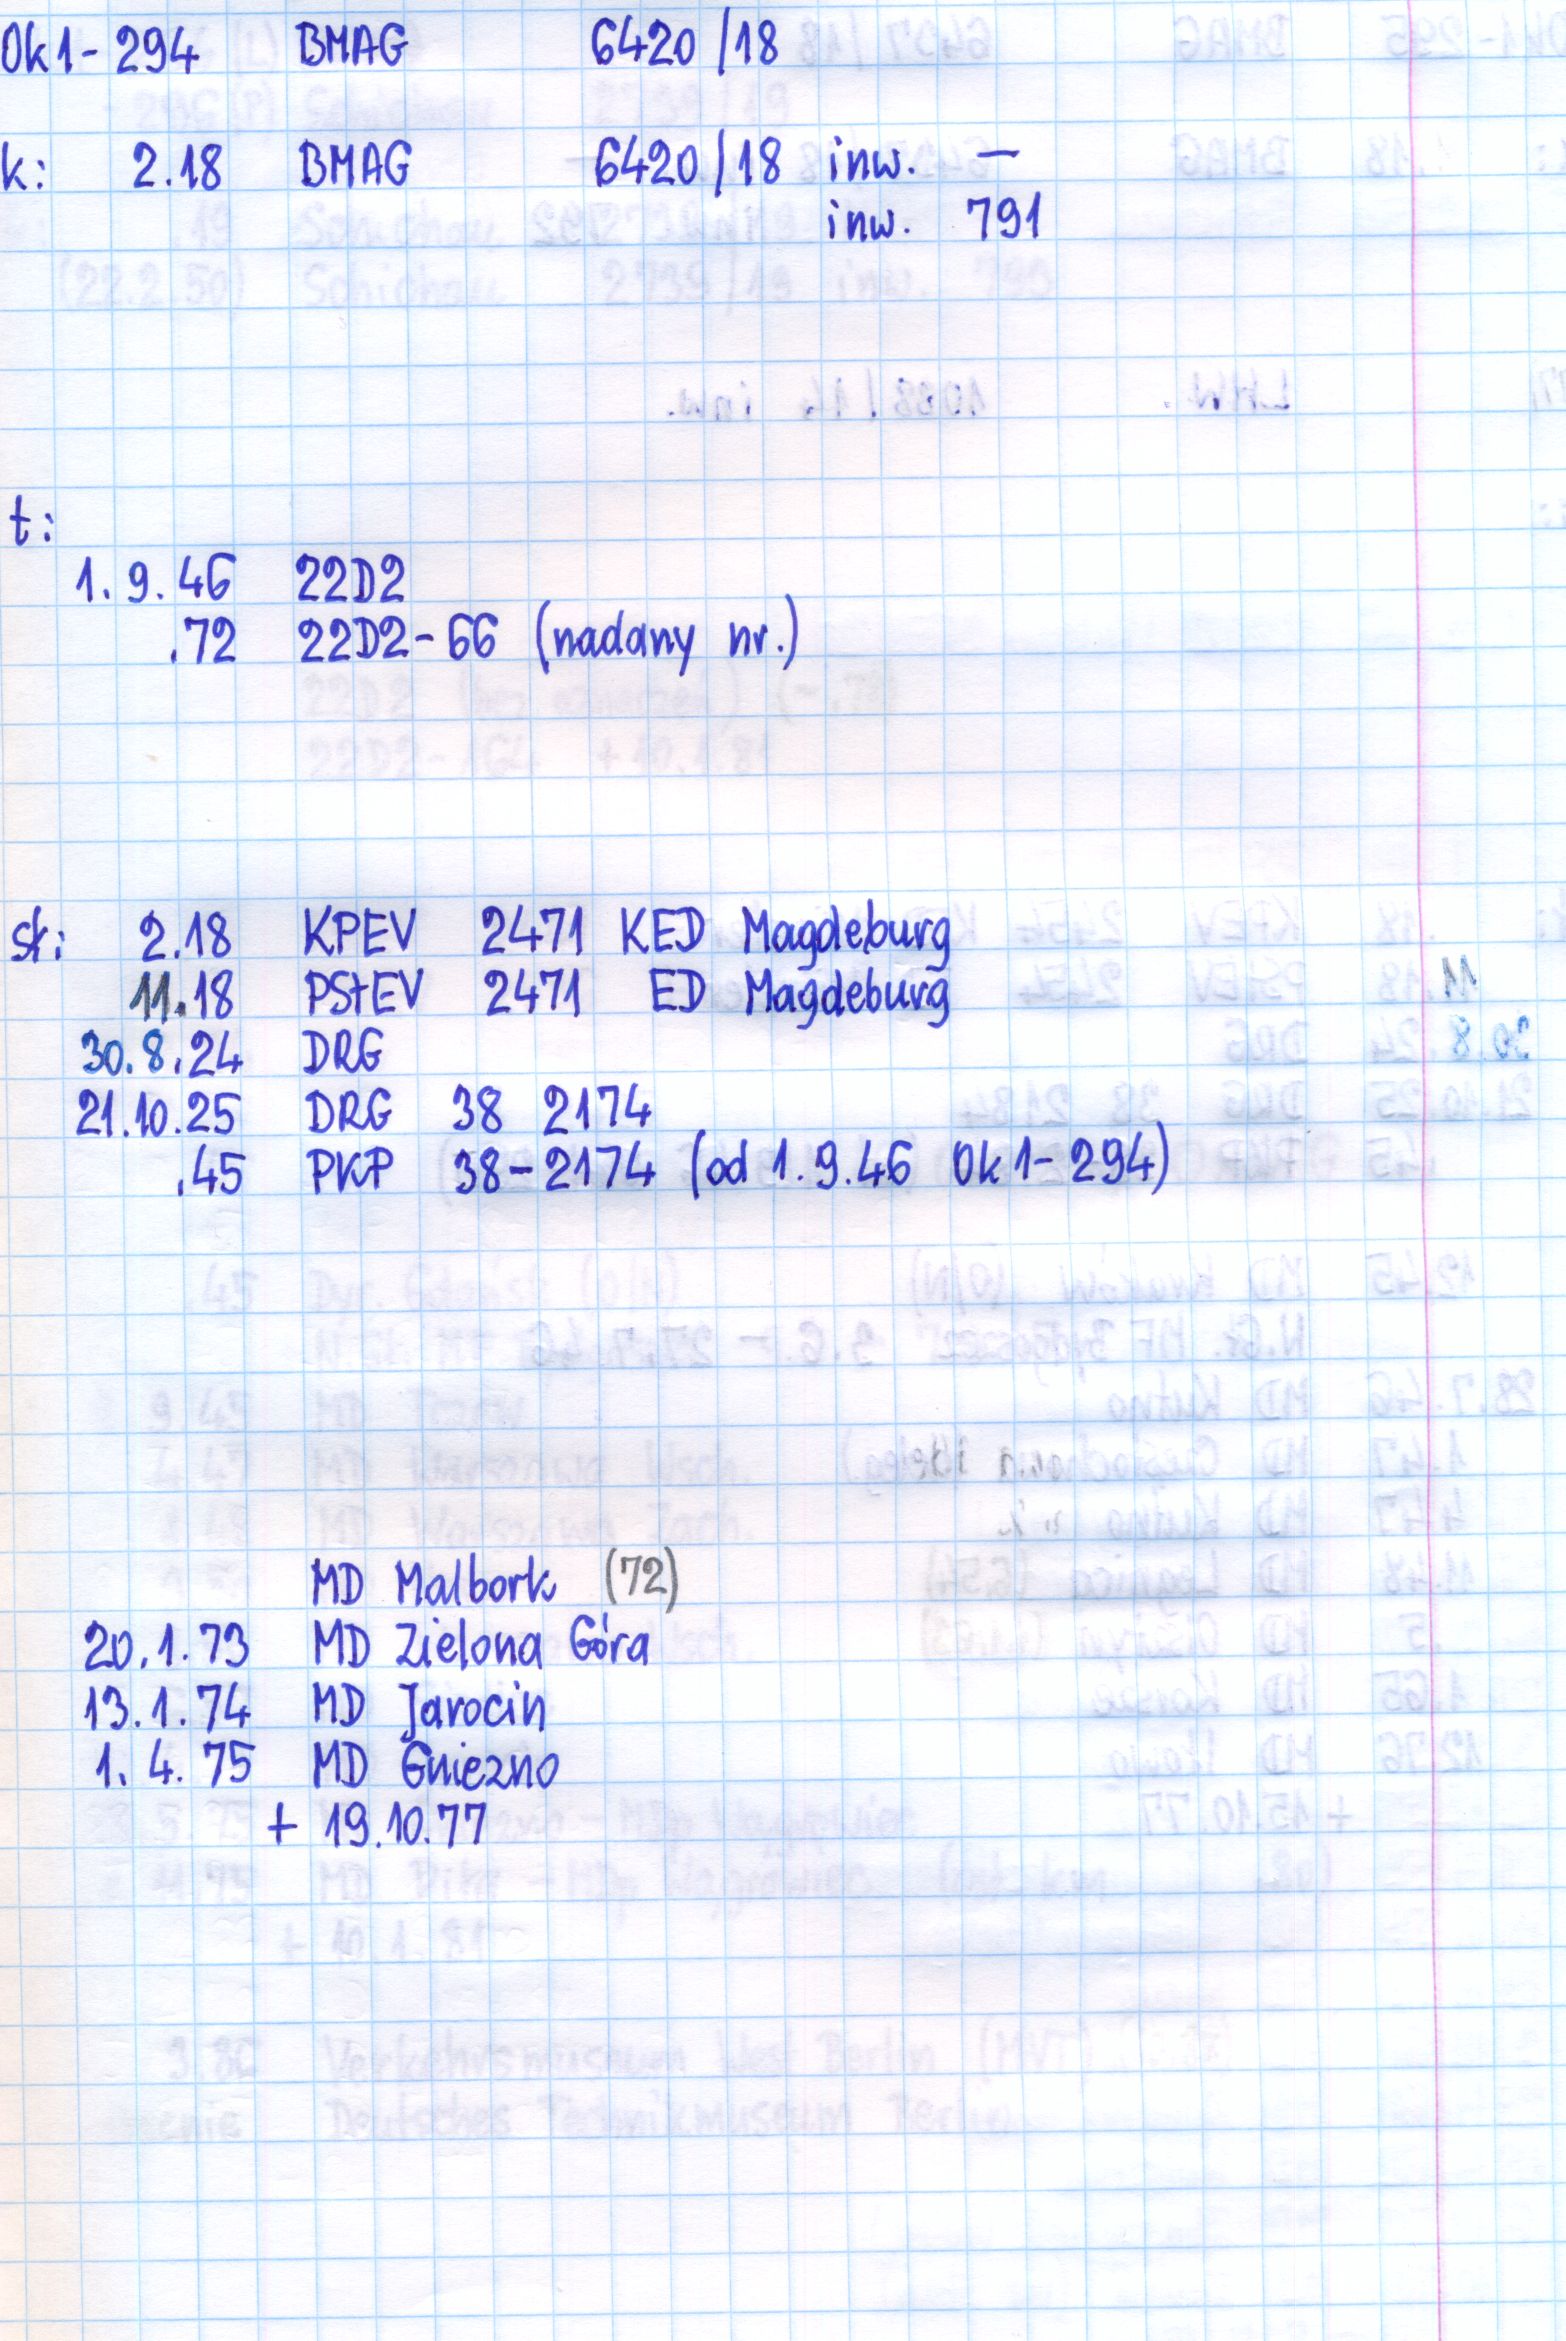 Ok1-294 BMAG 6420/18
k: 2.18 BMAG 6420/18 inw. —
inw. 791
t:
1.9.46 22D2
.72 22D2-66 (nadany nr.)
sł: 2.18 KPEV 2471 KED Magdeburg
11.18 PStEV 2471 ED Magdeburg
30.8.24 DRG
21.10.25 DRG 38 2174
.45 PKP 38-2174 (od 1.9.46 Ok1-294)
MD Malbork (72)
20.1.73 MD Zielona Góra
13.1.74 MD Jarocin
1.4.75 MD Gniezno
+ 19.10.77